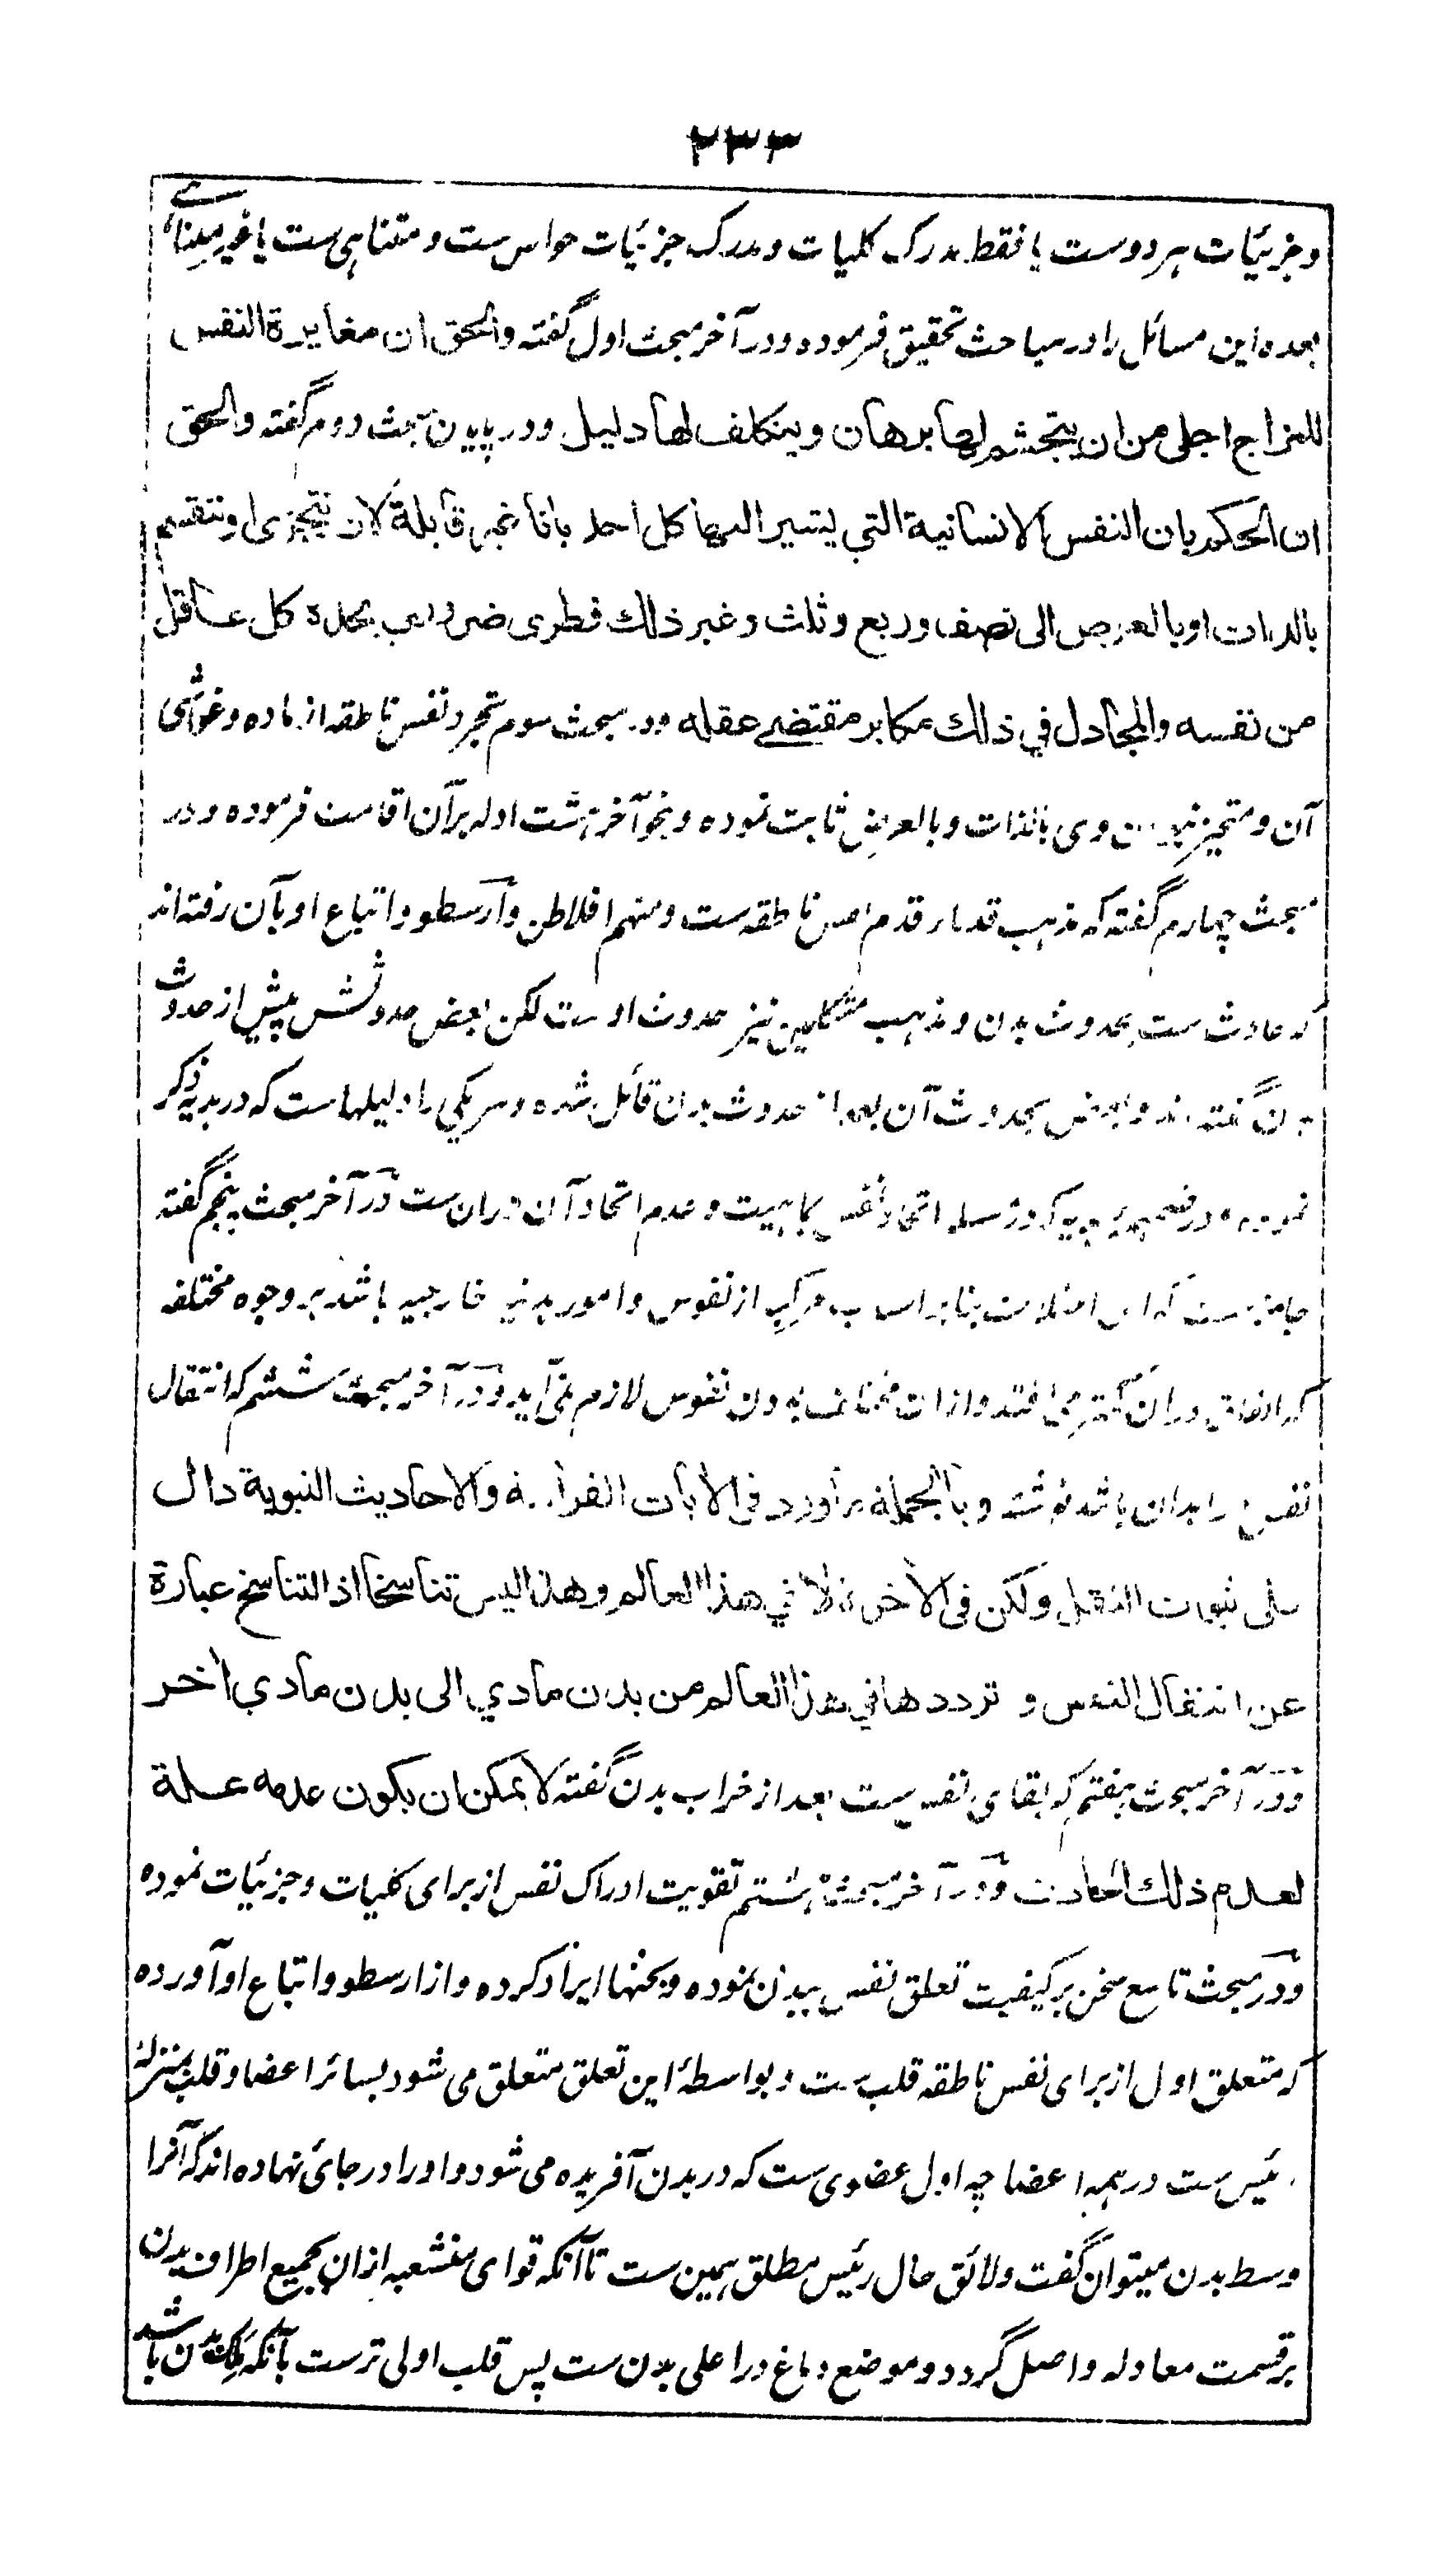 ۲۳۳
وجزئیات هر دوست یا فقط مدرک کلیات و مدرک جزئیات حواس ست و متناهی ست یا غیر متناهی
بعده این مسائل را در مباحث تحقیق فرموده و در آخر مبحث اول گفته والحق ان مغایرة النفس
للمزاج اجلی من ان یتجشم لها برهان ویتکلف لها دلیل و در پایان مبحث دوم گفته والحق
ان الحکم بان النفس الانسانیة التی یشیر الیها کل احد بانا غیر قابلة لان تتجزی او تنقسم
بالذات او بالعرض الی نصف وربع وثلث وغیر ذلک فطری ضروری یجده کل عاقل
من نفسه والمجادل فی ذلک مکابر مقتضی عقله ودر مبحث سوم تجرد نفس ناطقه از ماده و غواشی
آن و متحیز نبودن وی بالذات و بالعرض ثابت نموده و بنحو آخر هشت ادله بر آن اقامت فرموده و در
مبحث چهارم گفته که مذهب قدماء قدم نفس ناطقه ست و منهم افلاطن و ارسطو و اتباع او بآن رفته اند
که حادث ست بحدوث بدن و مذهب متکلمین نیز حدوث اوست لکن بعض حدوثش پیش از حدوث
بدن گفته اند و بعض بحدوث آن بعد از حدوث بدن قائل شده و هر یکی را دلیلهاست که در بدیه ذکر
نموده در اتحاد نفس بماهیت و عدم اتحاد آن دران ست در آخر مبحث پنجم گفته
جائز ست که این اختلاف بنابر اسباب مرکب از نفوس و امور بدنیه خارجیه باشد بر وجوه مختلفه
که اتفاق دران کمتر می افتد و ازان مختلف بودن نفوس لازم نمی آید و در آخر مبحث ششم که انتقال
نفس را بدان باشد نوشته و بالجملة ما ورد فی الآیات القرآنیة والاحادیث النبویة دال
علی ثبوت النقل ولکن فی الآخرة لا فی هذا العالم وهذا لیس تناسخا اذ التناسخ عبارة
عن انتقال النفس و ترددها فی هذا العالم من بدن مادی الی بدن مادی آخر
و در آخر مبحث هفتم که بقای نفس ست بعد از خراب بدن گفته لا یمکن ان یکون عدمه علة
لعدم ذلک الحادث و در آخر مبحث هشتم تقویت ادراک نفس از برای کلیات و جزئیات نموده
و در مبحث تاسع سخن بر کیفیت تعلق نفس ببدن نموده و بحثها ایراد کرده و از ارسطو و اتباع او آورده
که متعلق اول از برای نفس ناطقه قلب ست و بواسطهٔ این تعلق متعلق می شود بسائر اعضا و قلب بمنزلهٔ
رئیس ست در همه اعضا چه اول عضوی ست که در بدن آفریده می شود و او را در جائی نهاده اند که آنرا
وسط بدن میتوان گفت و لائق حال رئیس مطلق همین ست تا آنکه قوای منشعبه ازان بجمیع اطراف بدن
بر قسمت معادله واصل گردد و موضع دماغ در اعلی بدن ست پس قلب اولی ترست بآنکه ملک بدن باشد